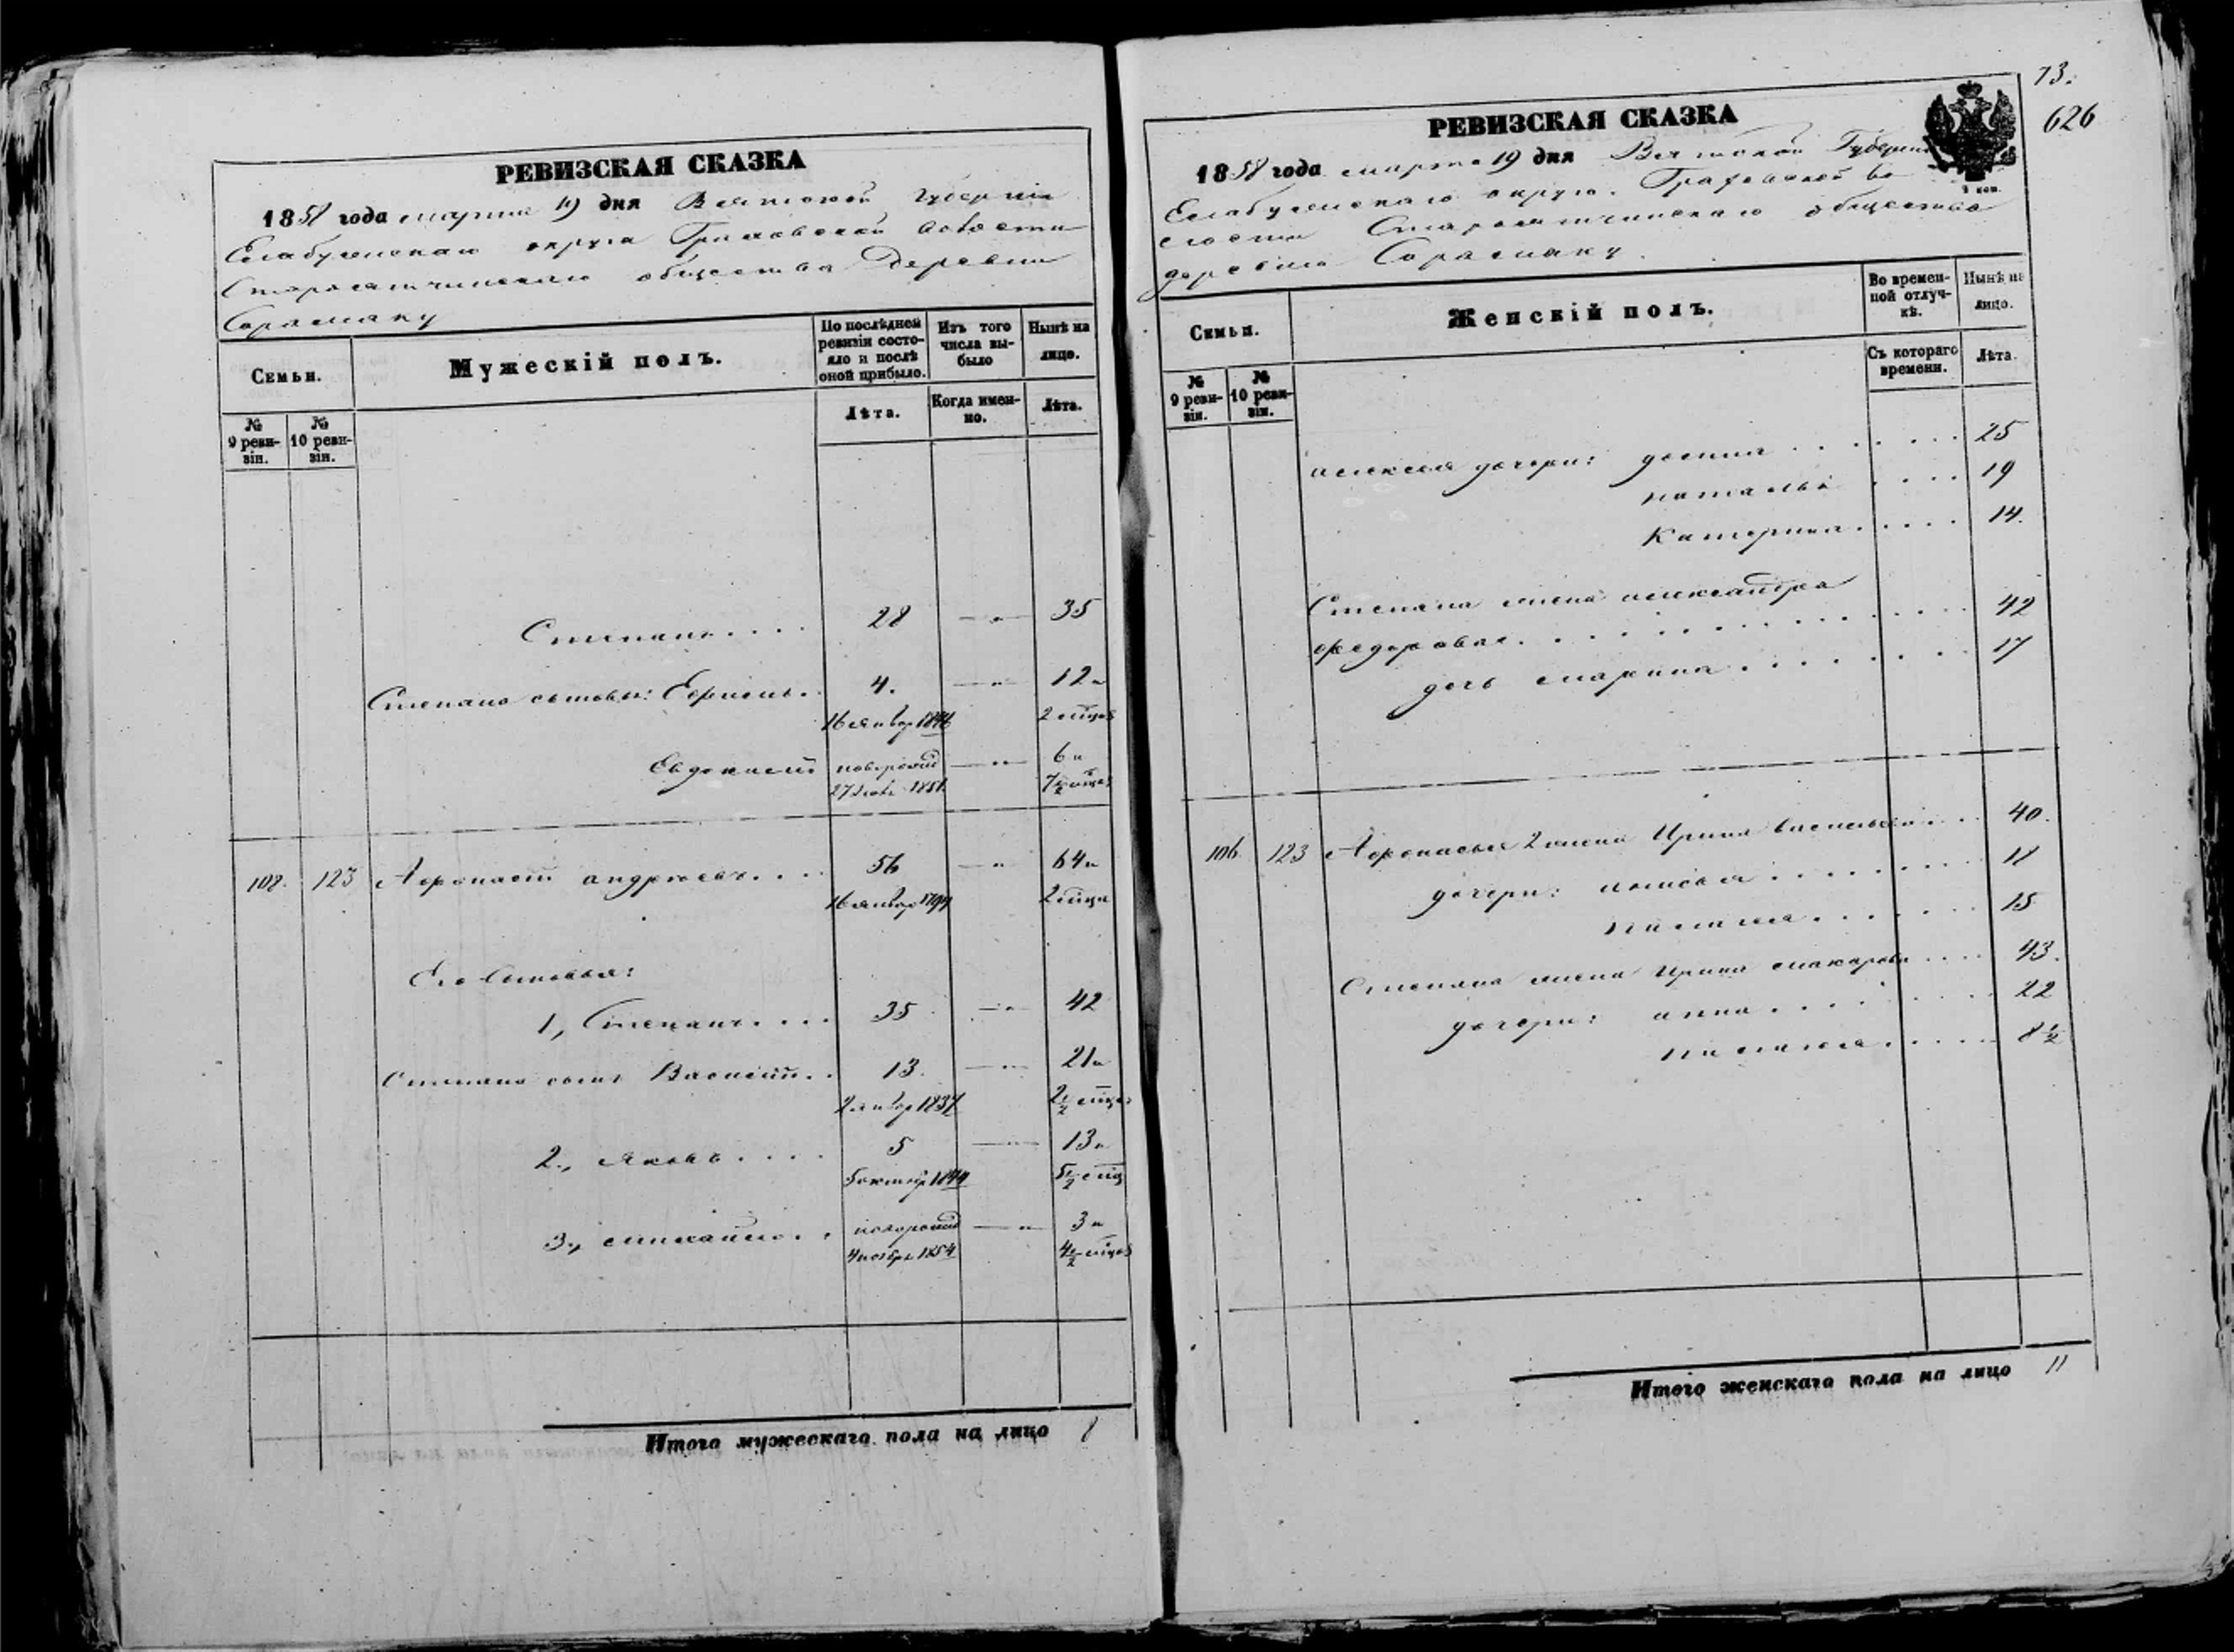 РЕВИЗСКАЯ СКАЗКА
1858 года марта 19 дня Вятской Губерніи
Елабужскаго округа Граховской волости
общества деревни
Сарамаку
Семьи.
Мужескій полъ.
По послѣдней ревизіи состояло и послѣ оной прибыло.
Изъ того числа выбыло
Нынѣ на лицо.
№ 9 ревизіи.
№ 10 ревизіи.
Лѣта.
Когда именно.
Лѣта.
Степанъ.... 28 — „ — 35
Степана сыновья: Ефримъ. 4. — „ — 12 и
16 январ 1846 2 мѣцов
Евдокимъ новорожд — „ — 6 и
27 1851 7½ мѣцов
108. 123 Афонасій андреевъ.... 56 — „ 64 и
16 январ 1794 2 мѣца
Его Сыновья:
1, Степанъ.... 35 — „ — 42
Степана сынъ Василій.. 13. — „ — 21 и
2 январ 1837 2½ мѣцов
2., Яковъ.... 5 — „ — 13 и
5 октябр 1844 5½ мѣц
3., михайло.. новорожд — „ — 3 и
4 ноября 1854 4½ мѣцов
Итого мужескаго пола на лицо 8
73.
626
РЕВИЗСКАЯ СКАЗКА
1858 года марта 19 дня Вятской Губерніи
Елабужскаго округа. Граховской во
лости общества
деревни Сарамаку.
Семьи.
Женскій полъ.
Во временной отлучкѣ.
Нынѣ на лицо.
№ 9 ревизіи.
№ 10 ревизіи.
Съ котораго времени.
Лѣта.
алексея дочери: домна....... 25
наталья.... 19
Катерина..... 14.
Степана жена александра
федорова............ 42
дочь марина........ 17
106. 123 Афонасья 2 жена Ирина васильева.... 40.
дочери: 18
15
Степана жена Ирина макарова.... 43.
дочери: анна....... 22
8½
Итого женскаго пола на лицо 11